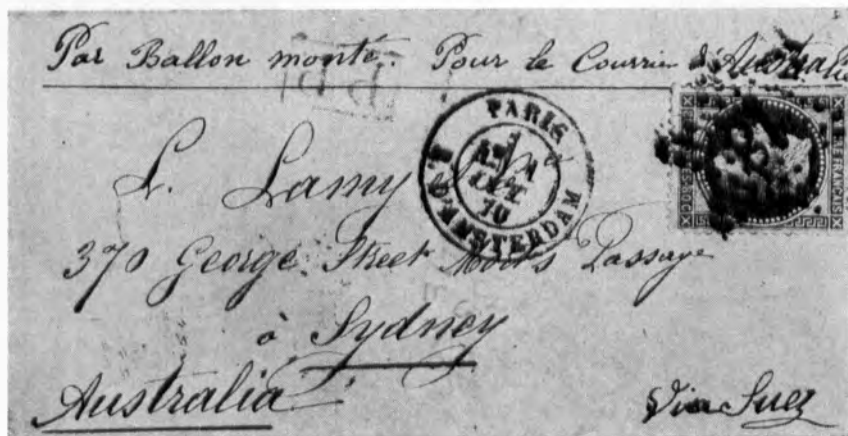 Par Ballon monté. Pour le Courrier d'Australie
PARIS
OCT.
70
R. D'AMSTERDAM
FRANÇAIS
L. Lamy
370 George Street Passage
à Sydney
Australia
Via Suez